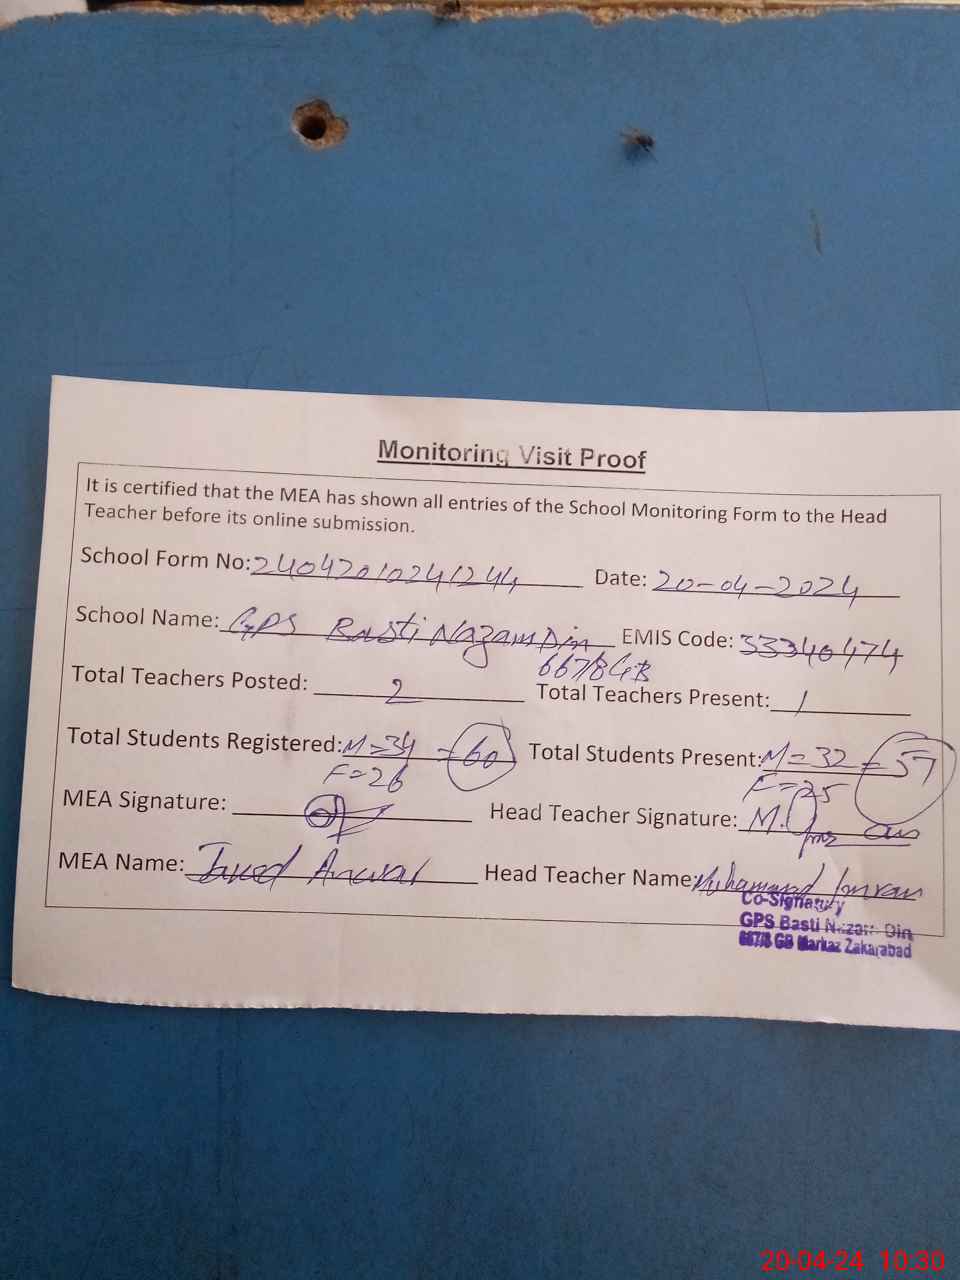 Monitoring Visit Proof
It is certified that the MEA has shown all entries of the School Monitoring Form to the Head
Teacher before its online submission.
School Form No: 24042010241244 Date: 20-04-2024
School Name: GPS Basti Nazam Din EMIS Code: 33340474
667/8 GB
Total Teachers Posted: 2 Total Teachers Present: 1
Total Students Registered: M=34 = 60 Total Students Present: M=32 = 57
F=26 F=25
MEA Signature: Head Teacher Signature: M. Imran
MEA Name: Javed Anwar Head Teacher Name: Muhammad Imran
Co-Signatury
GPS Basti Nazam Din
667/8 GB Markaz Zakariabad
20-04-24 10:30